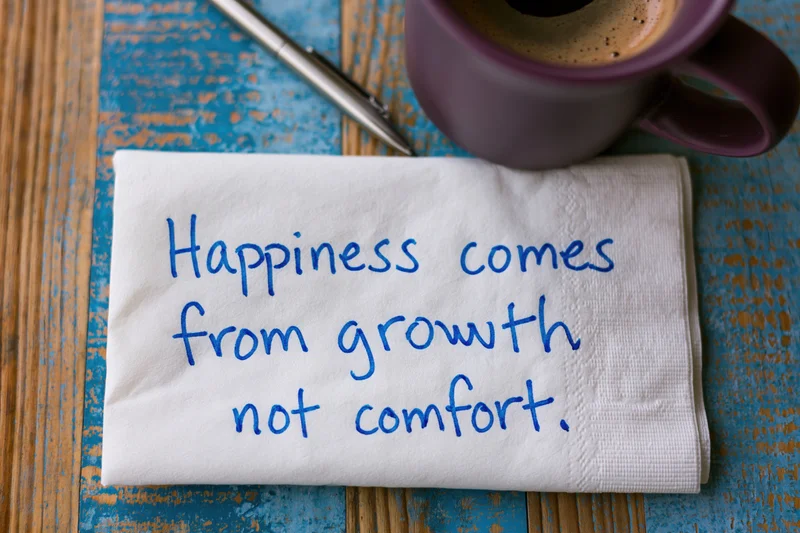 Happiness comes
from growth
not comfort.